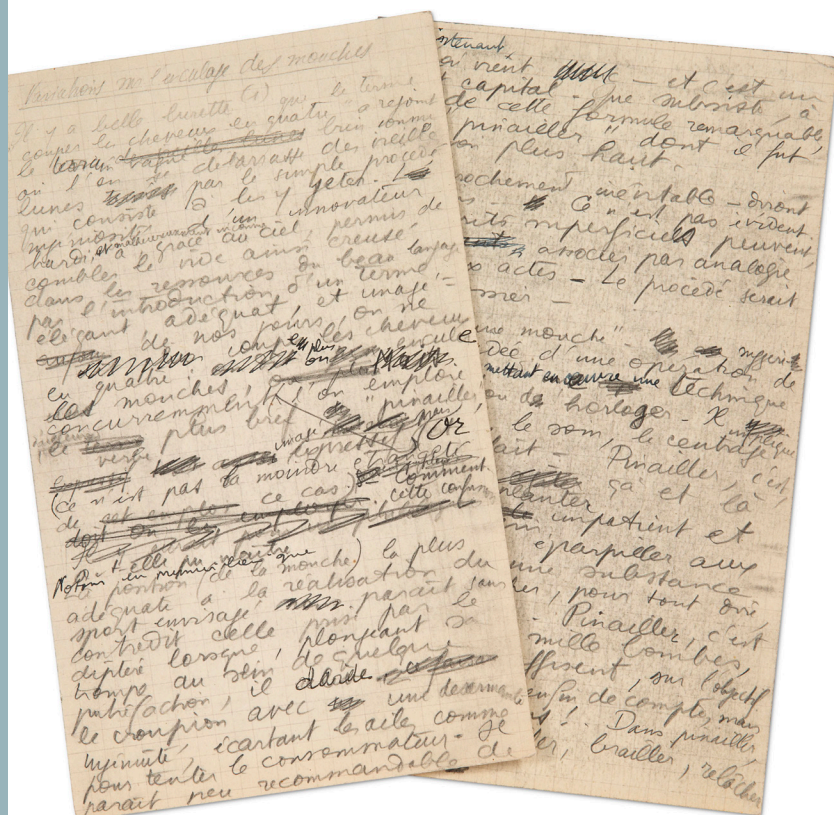 Variations sur l'enculage des mouches
Il y a belle lurette (1) que le terme
couper les cheveux en quatre a rejoint
le terrain vague bien connu
où l'on se débarrasse des vieilles
lunes par le simple procédé
qui consiste à les y jeter. L
ingéniosité d'un innovateur
hardi, et malheureusement inconnu
a grâce au ciel, permis de
combler le vide ainsi creusé
dans les ressources du beau langage
par l'introduction d'un terme
élégant adéquat, et imagé -
de nos jours, on ne
coupe plus les cheveux
en quatre on encule
les mouches,
concurremment l'on emploie
le verbe plus bref "pinailler
imagé
expressif (or
(ce n'est pas la moindre étrangeté
de ce cas.) comment
cette confusion
a-t-elle pu naître
Notons en premier lieu que
la position (de la mouche) la plus
adéquate à la réalisation du
sport envisagé, paraît sans
contredit celle prise par le
diptère lorsque, plongeant sa
trompe au sein de quelque
putréfaction, il darde
le croupion avec une désarmante
ingénuité, écartant les ailes comme
pour tenter le consommateur. Il
paraît peu recommandable de
intenant
ai vient — et c'est un
t capital - que subsiste, à
de cette formule remarquable,
"pinailler" dont il fut
on plus haut.
rochement inévitable - diront
Ce n'est pas évident
rits superficiels peuvent,
associer par analogie
x actes - Le procédé serait
ssier -
une mouche" - suggère
dée d'une opération de
mettant en oeuvre une technique
on de horloger - Il implique
le soin, le centrage
fait - Pinailler, c'est,
ça et là
planter
impatient et
éparpiller aux
une substance
, pour tout dire,
. Pinailler, c'est
mille bombes,
ffisent, sur l'objectif
enfin de compte, mais
s! . Dans pinailler,
ller, brailler, relâcher